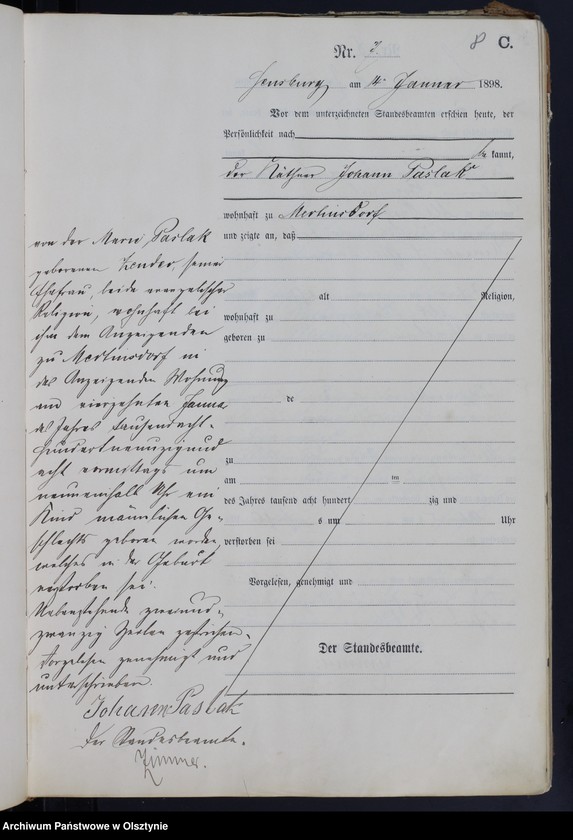 8 C.
Nr. 7
Sensburg am 14. Januar 1898.
Vor dem unterzeichneten Standesbeamten erschien heute, der
Persönlichkeit nach
be kannt,
der Käthner Johann Paslak
wohnhaft zu Mertinsdorf
und zeigte an, daß
alt Religion,
wohnhaft zu
geboren zu
de
zu
am im
des Jahres tausend acht hundert zig und
s um Uhr
verstorben sei
Vorgelesen, genehmigt und
Der Standesbeamte.
von der Marie Paslak
geborenen seiner
Ehefrau, beide evangelischer
Religion, wohnhaft bei
ihm dem Anzeigenden
zu Mertinsdorf in
des Anzeigenden Wohnung
am vierzehnten Janua
des Jahres tausendacht-
hundertneunzigund
acht vormittags um
neuneinhalb Uhr ein
Kind männlichen Ge-
schlechts geboren worden,
welches in der Geburt
verstorben sei.
Nebenstehende zweiund-
zwanzig Zeilen gestrichen.
Vorgelesen genehmigt und
unterschrieben.
Johann Paslak
Der Standesbeamte.
Zimmer.
Archiwum Państwowe w Olsztynie